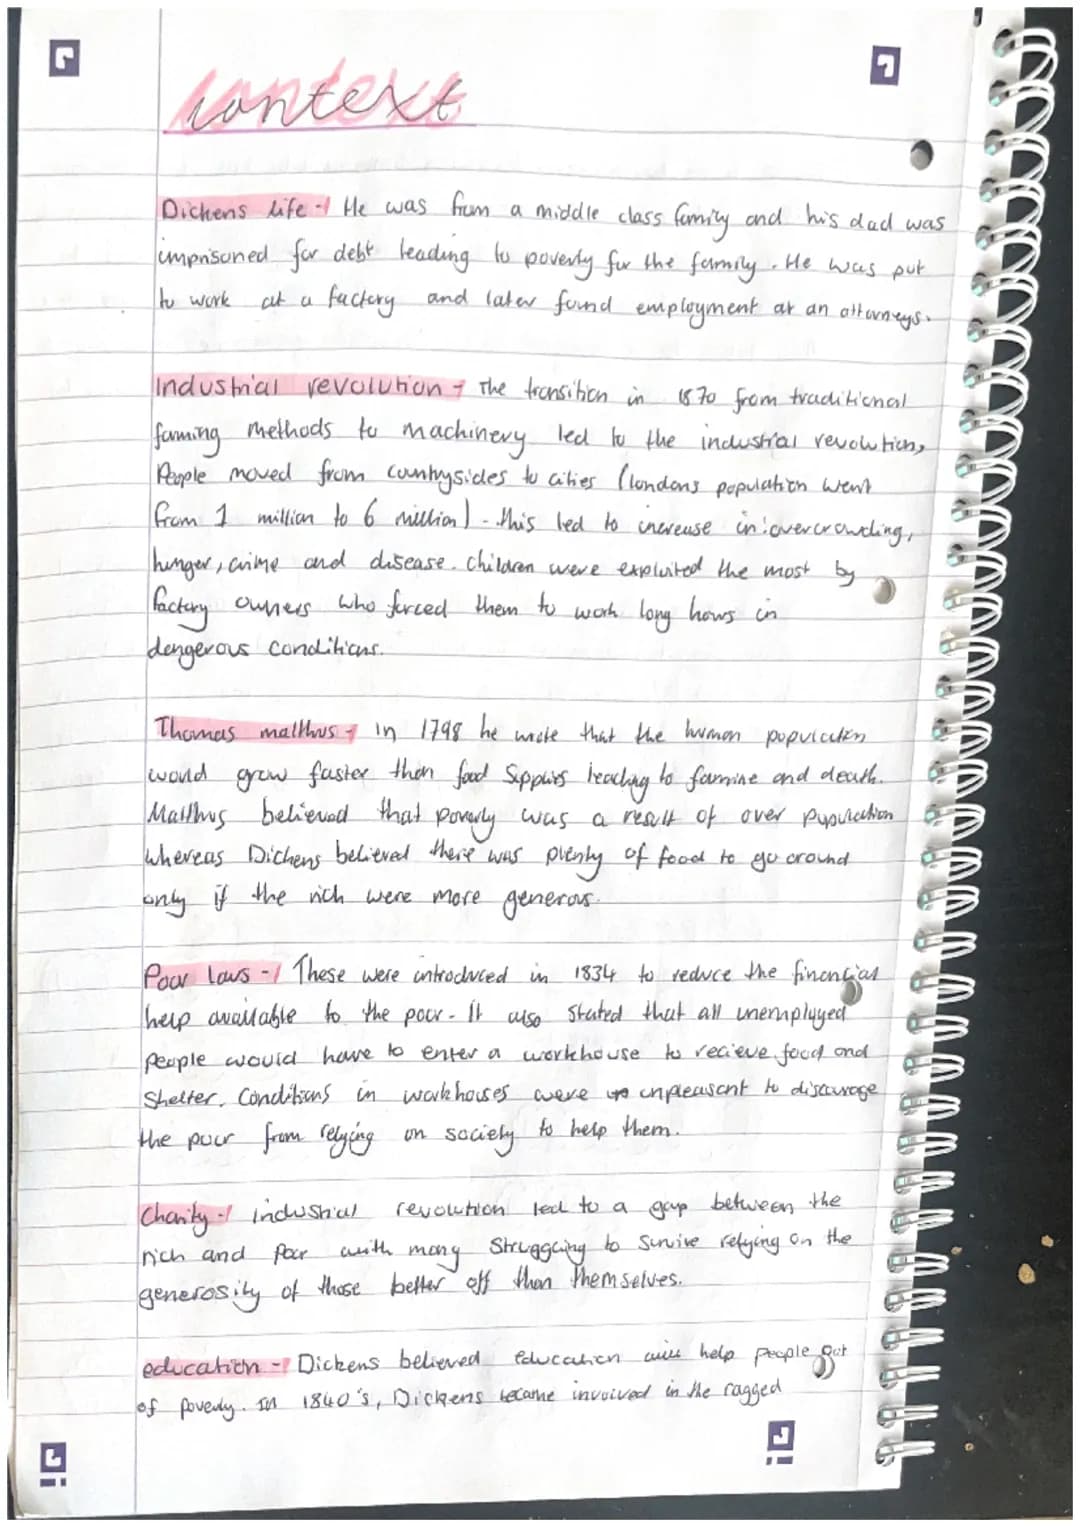 context
Dickens life - He was from a middle class family and his dad was
imprisoned for debt leading to poverty for the family. He was put
to work at a factory and later found employment at an attorneys.
Industrial revolution - The transition in 1870 from traditional
farming methods to machinery led to the industrial revolution,
People moved from countrysides to cities (londons population went
from 1 million to 6 million) - this led to increase in: overcrowding,
hunger, crime and disease. Children were exploited the most by
factory owners who forced them to work long hours in
dangerous conditions.
Thomas malthus - in 1798 he wrote that the human population
would grow faster than food supplies leading to famine and death.
Malthus believed that poverty was a result of over population
whereas Dickens believed there was plenty of food to go around
only if the rich were more generous.
Poor laws - These were introduced in 1834 to reduce the financial
help available to the poor. It also stated that all unemployed
people would have to enter a workhouse to recieve food and
shelter. Conditions in workhouses were unpleasant to discourage
the poor from relying on society to help them.
Charity - industrial revolution led to a gap between the
rich and poor with many struggling to survive relying on the
generosity of those better off than themselves.
education - Dickens believed education will help people out
of poverty. In 1840's, Dickens became involved in the ragged